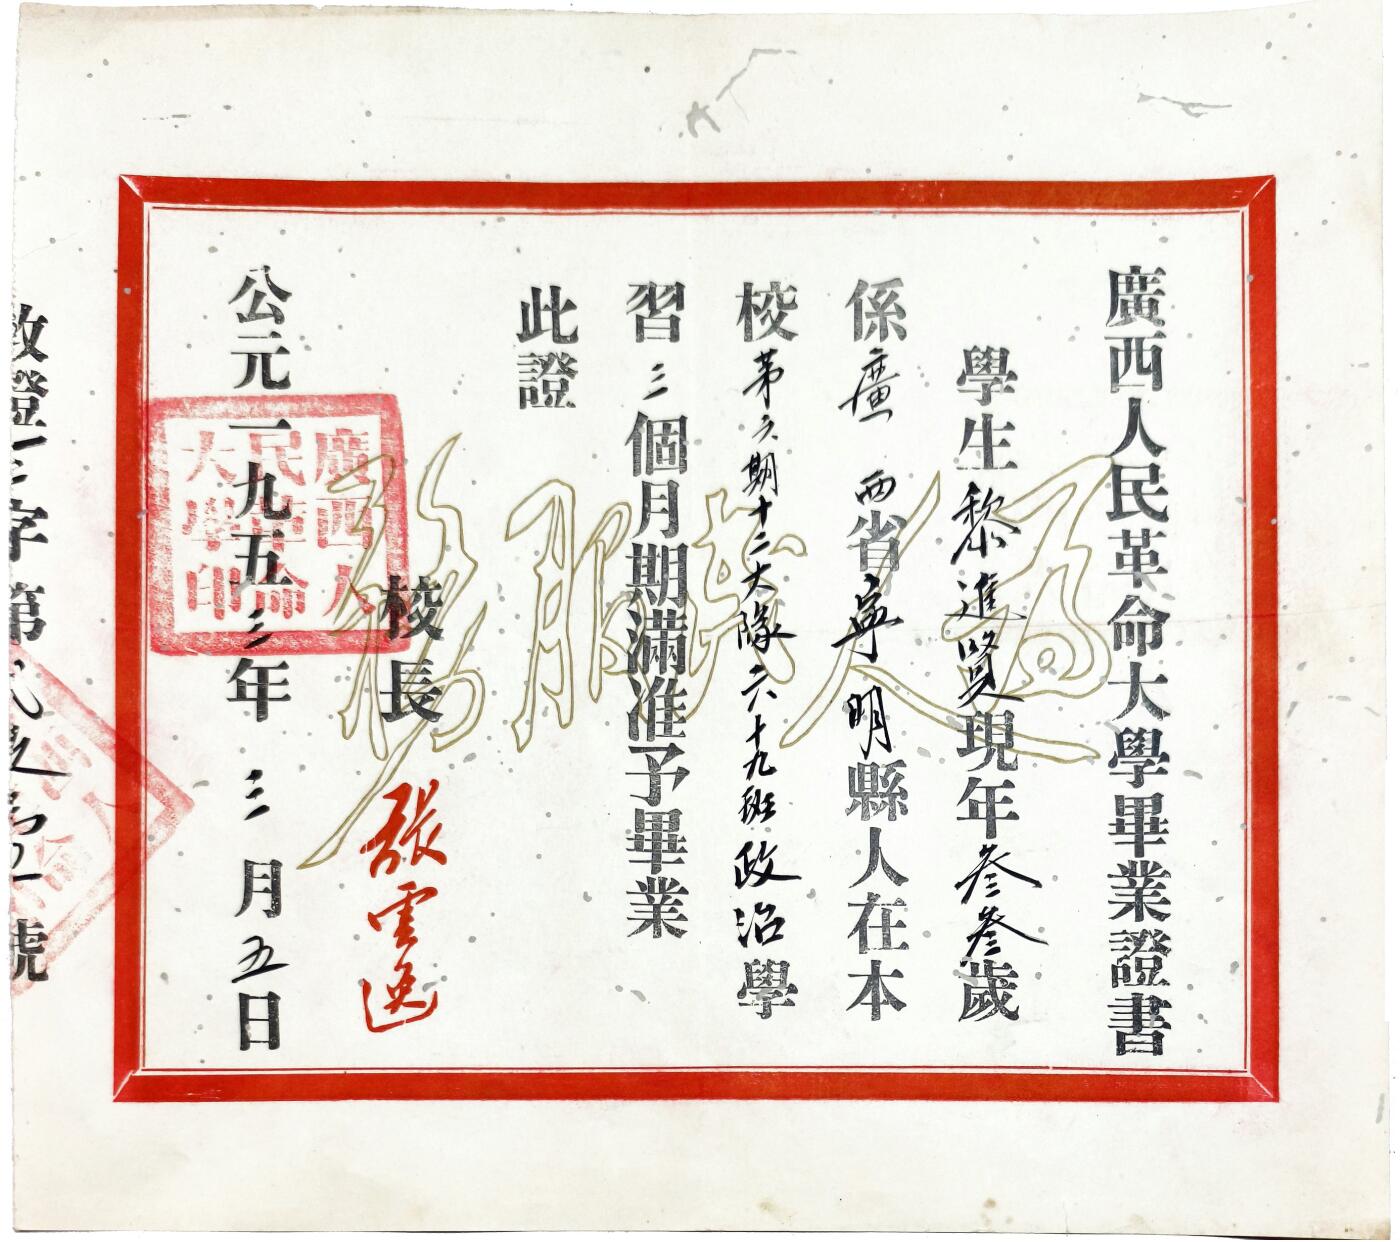 廣西人民革命大學畢業證書
學生黎進賢現年叁叁歲
係廣西省寧明縣人在本
校第六期十二大隊六十九班政治學
習三個月期滿准予畢業
此證
為人民服務
校長 張雲逸
公元一九五三年三月五日
廣西人民革命大學印
教證三字第號